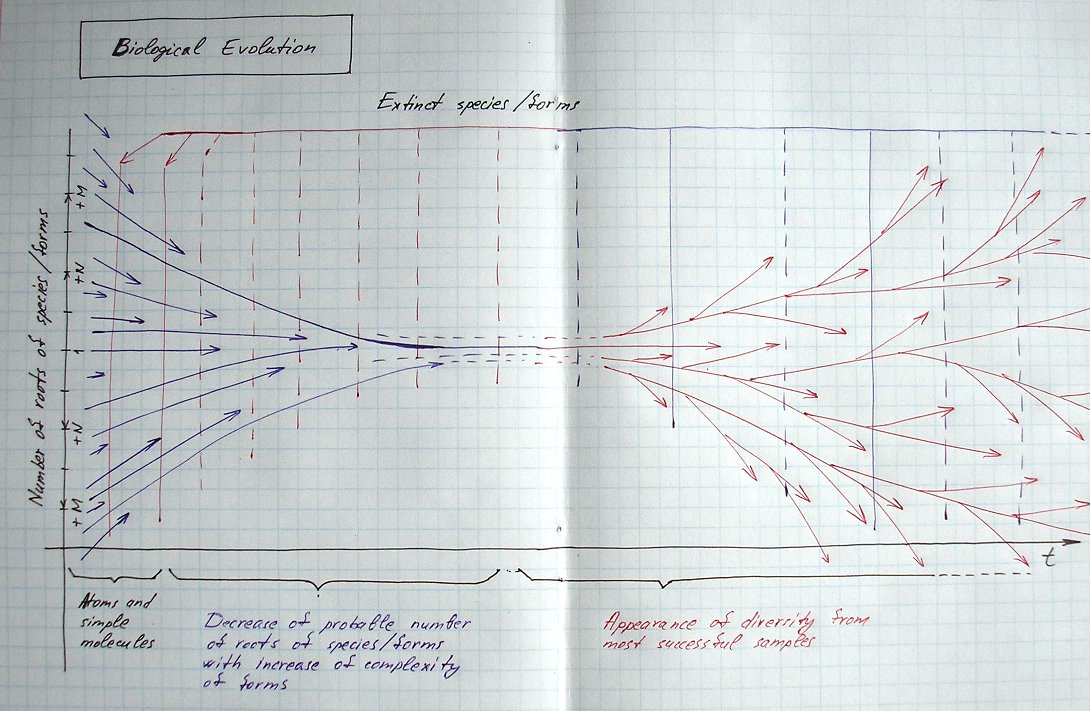 Biological Evolution
Extinct species/forms
Number of roots of species/forms
+M
+N
1
+N
+M
t
Atoms and
simple
molecules
Decrease of probable number
of roots of species/forms
with increase of complexity
of forms
Appearance of diversity from
most successful samples